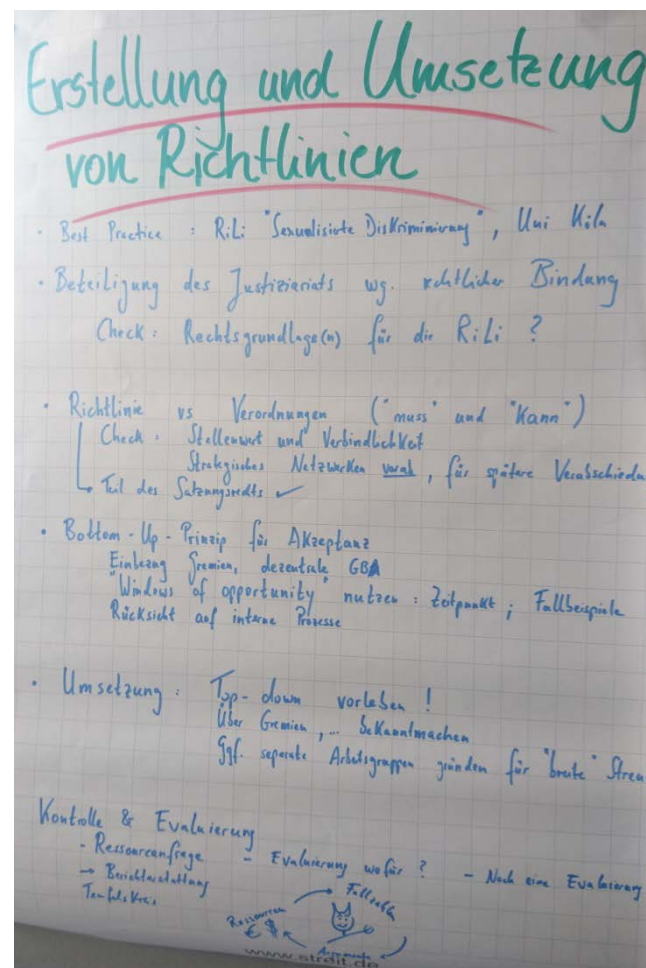 Erstellung und Umsetzung
von Richtlinien
· Best Practice : RiLi "Sexualisierte Diskriminierung", Uni Köln
· Beteiligung des Justiziariats wg. rechtlicher Bindung
Check: Rechtsgrundlage(n) für die RiLi ?
· Richtlinie vs Verordnungen ("muss" und "Kann")
Check: Stellenwert und Verbindlichkeit
Strategisches Netzwerken vorab, für spätere Verabschiedu
↳ Teil des Satzungsrechts ✓
· Bottom-Up-Prinzip für Akzeptanz
Einbezug Gremien, dezentrale GBA
"Windows of opportunity" nutzen : Zeitpunkt ; Fallbeispiele
Rücksicht auf interne Prozesse
· Umsetzung : Top-down vorleben !
Über Gremien, ... bekanntmachen
Ggf. separate Arbeitsgruppen gründen für "breite" Streu
Kontrolle & Evaluierung
- Ressourcenfrage - Evaluierung wofür ? - Noch eine Evaluierung
→ Berichterstattung
Teufelskreis
Fallzahlen
Ressourcen
€ $
Argumente
www.streit.de